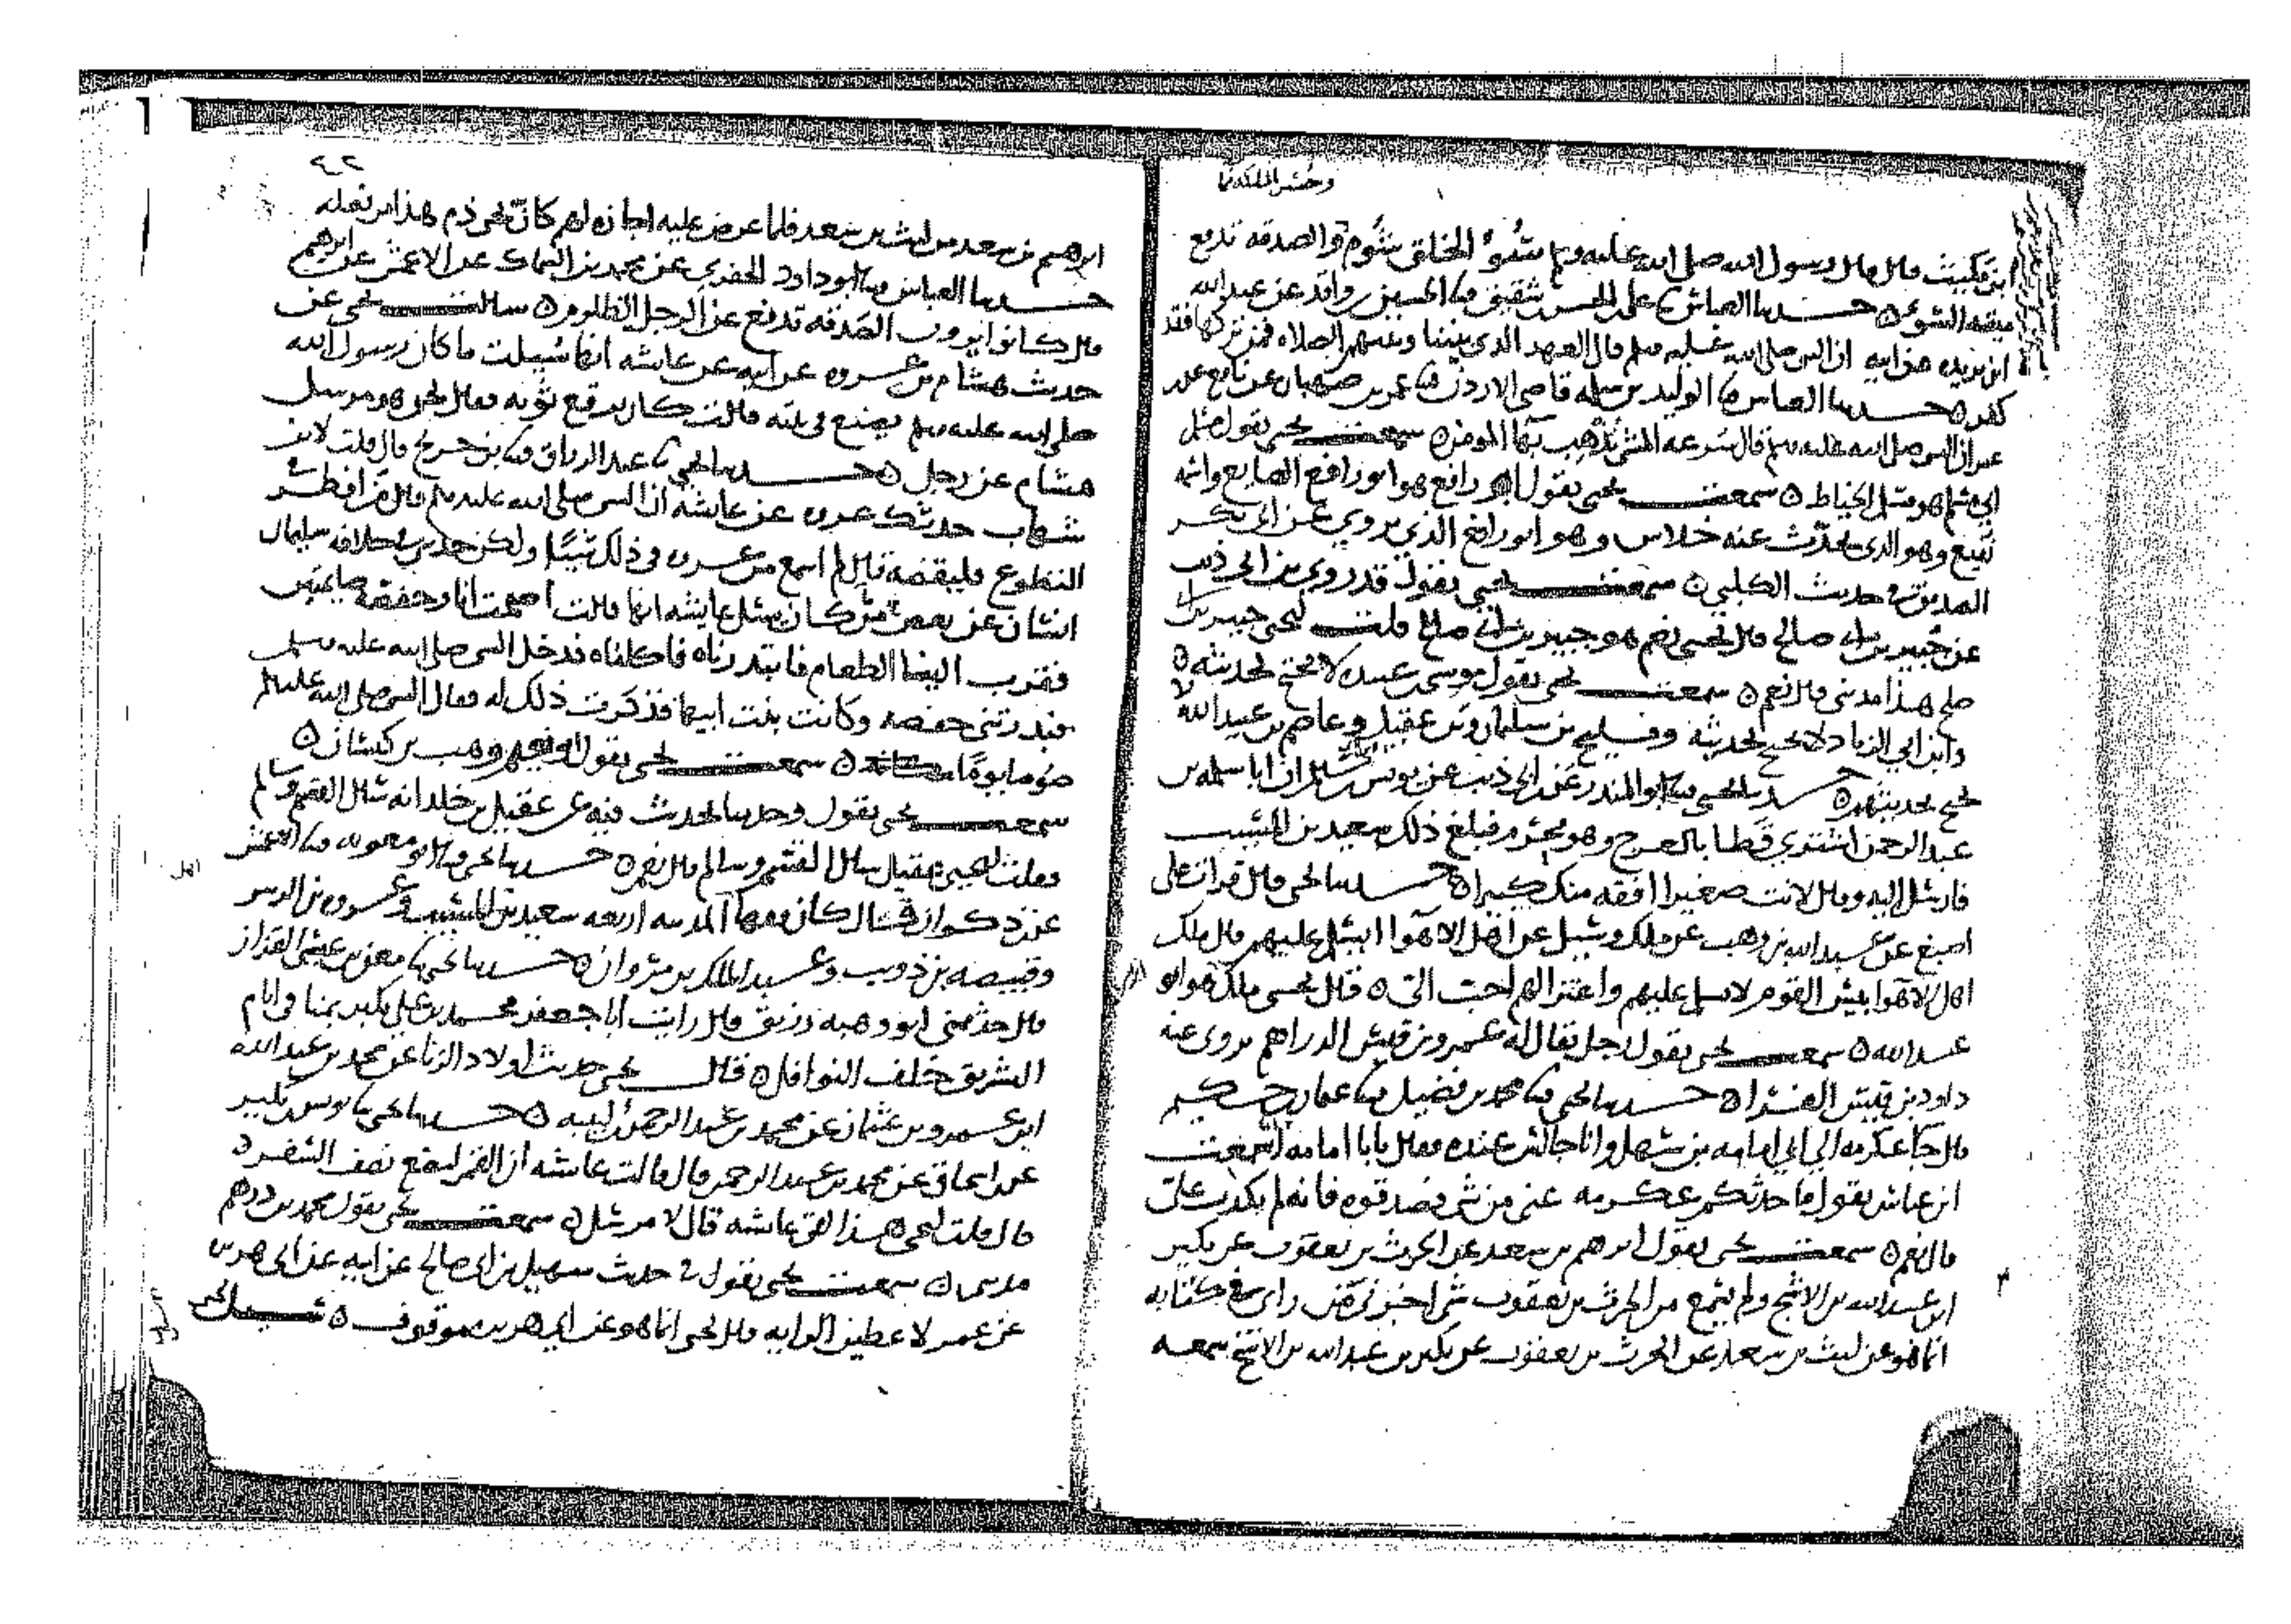 وحسن الملكه نما
ابن مكيث قال قال رسول الله صلى الله عليه وسلم سُوُ الخلق شُوم والصدقه تدفع
ميتة السوء ٥ حدثنا العباس علي بن الحسن بن شقيق الحسين بن واقد عن عبد الله
ابن بريده عن ابيه ان النبي صلى الله عليه وسلم قال العهد الذي بيننا وبينهم الصلاه فمن تركها فقد
كفر ٥ حدثنا العباس الوليد بن سلمه قاضي الاردن عمر بن صهبان عن نافع عن
عمر ان النبي صلى الله عليه وسلم قال سرعه المشي تذهب بها المومن ٥ سمعت يحيى يقول
هو مسلم الخياط ٥ سمعت يحيى يقول ابو رافع هو ابو رافع الصايغ واسمه
نفيع وهو الذي يحدث عنه خلاس وهو ابو رافع الذي يروي عن ابي بكر
الصديق حديث الكلبي ٥ سمعت يحيى يقول قد روى بن ابي ذيب
عن جبير بن ابي صالح قال يحيى نعم هو جبير بن ابي صالح قلت ليحيى جبير بن ابي
صلح هذا مدني قال نعم ٥ سمعت يحيى يقول موسى بن عبيده لا يحتج بحديثه ٥
وابن ابي الزناد لا يحتج بحديثه وفليح بن سليمان وبن عقيل وعاصم بن عبيد الله لا
يحتج بحديثهم ٥ حدثنا يحيى ابو المنذر عن بن ابي ذيب عن يونس ان ابا سلمه بن
عبد الرحمن اشترى قطا بالعرج وهو محرم فبلغ ذلك سعيد بن المسيب
فارسل اليه وقال لانت صغيرا افقه منك كبيرا ٥ حدثنا يحيى قال قرات على
اصبغ عن عبد الله بن وهب عن ملك وسيل عن اهل الاهوا ايسلم عليهم قال ملك
اهل الاهوا بئس القوم لا يسلم عليهم واعتزالهم احب الي ٥ قال يحيى ملك هو ابو
عبد الله ٥ سمعت يحيى يقول رجل يقال له عمرو بن قيس الدراهم يروى عنه
داود بن قيس الفرا ٥ حدثنا يحيى محمد بن فضيل عثمان بن حكيم
قال جا عكرمه الى ابي امامه بن سهل وانا جالس عنده فقال يا با امامه اسمعت
ابن عباس يقول ما حدثكم عكرمه عني من شي فصدقوه فانه لم يكذب علي
قال نعم ٥ سمعت يحيى يقول ابرهيم بن سعد عن الحرث بن يعقوب عن بكير
ابن عبد الله بن الاشج ولم يسمع من الحرث بن يعقوب شي اخبرني من راى في كتابه
انما هو عن ليث بن سعد عن الحرث بن يعقوب عن بكير بن عبد الله بن الاشج سمعه
ابرهيم بن سعد من ليث بن سعد فلما عرض عليه اجازه لهم كان يحيى ذم بهذا من فعله
حدثنا العباس ابو داود الحفري عن محمد بن السماك عن الاعمش عن ابرهيم
قال كانوا يرون الصدقه تدفع عن الرجل الظلوم ٥ سالت يحيى عن
حديث هشام بن عروه عن ابيه عن عائشه انها سيلت ما كان رسول الله
صلى الله عليه وسلم يصنع في بيته قالت كان يرقع ثوبه فقال يحيى هو مرسل
هشام عن رجل ٥ حدثنا يحيى عبد الرزاق بن جريج قال قلت لابن
شهاب حدثك عروه عن عائشه ان النبي صلى الله عليه وسلم قال من افطر في
التطوع فليقضه قال لم اسمع من عروه في ذلك شيا ولكن حدثني في خلافه سليمان
انسان عن بعض من كان يسئل عايشه انها قالت اصبحت انا وحفصه صايمتين
فقرب الينا الطعام فابتدرناه فاكلناه فدخل النبي صلى الله عليه وسلم
فبدرتني حفصه وكانت بنت ابيها فذكرت ذلك له فقال النبي صلى الله عليه وسلم
صوما يوما مكانه ٥ سمعت يحيى يقول ابو نعيم وهب بن كيسان ٥
سمعت يحيى يقول وحدثنا بحديث فيه عن عقيل بن خلد انه سال القسم وسالم
فقلت ليحيى عقيل سال القسم وسالم قال نعم ٥ حدثنا يحيى ابو معويه الاعمش
عن ذكوان قال كان فقها المدينه اربعه سعيد بن المسيب وعروه بن الزبير
وقبيصه بن ذويب وعبد الملك بن مروان ٥ حدثنا يحيى معن بن عيسى القزاز
قال حدثني ابو وهبه رزيق قال رايت ابا جعفر محمد بن علي يكبر بمنا في ايام
التشريق خلف النوافل ٥ قال يحيى حديث اولاد الزنا عن محمد بن عبد الله
ابن عمرو بن عثمان عن محمد بن عبد الرحمن بن لبيبه ٥ حدثنا يحيى يونس بن بكير
عن بن اسحاق عن محمد بن عبد الرحمن قال قالت عائشه ان القمر ليقع نصف الشهر ٥
قال قلت ليحيى هذا لقي عائشه قال لا مرسل ٥ سمعت يحيى يقول محمد بن درهم
مديني ٥ سمعت يحيى يقول في حديث سهيل بن ابي صالح عن ابيه عن ابي هريره
عن عمر لاعطين الرايه قال يحيى انما هو عن ابي هريره موقوف ٥ سيل يحيى